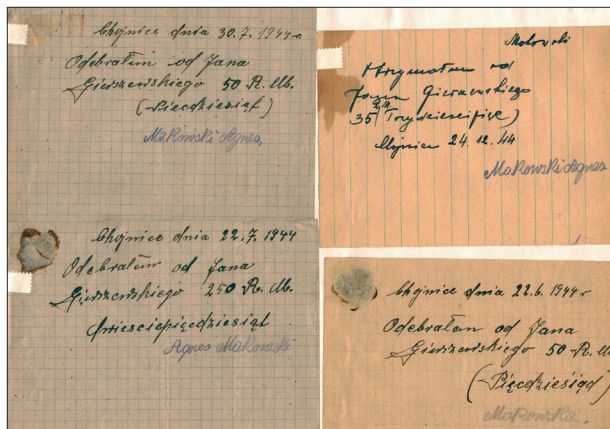 Chojnice dnia 30.7.1944 r
Odebrałem od Jana
Gierszewskiego 50 R. M.
(Pięćdziesiąt)
Makowski Agnes.
Chojnice dnia 22.7.1944
Odebrałem od Jana
Gierszewskiego 250 R. M.
dwieściepięcdziesiąt
Agnes Makowski
Makowski
Otrzymałem od
Jana Gierszewskiego
35 (Trzydzieścipięć)
Chojnice 24.12.44
Makowski Agnes
Chojnice dnia 22.6.1944 r
Odebrałem od Jana
Gierszewskiego 50 R. M.
(Pięcdziesiąd)
Makowska.